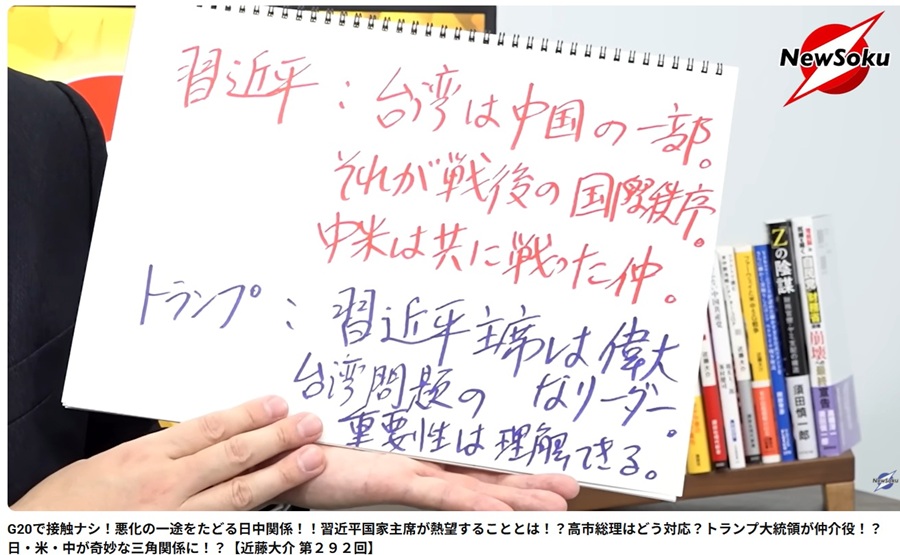 NewSoku
習近平：台湾は中国の一部。
それが戦後の国際秩序。
中米は共に戦った仲。
トランプ：習近平主席は偉大
なリーダー。
台湾問題の
重要性は理解できる。
Zの陰謀
須田慎一郎
崩壊
最終宣告
NewSoku
G20で接触ナシ！悪化の一途をたどる日中関係！！習近平国家主席が熱望することとは！？高市総理はどう対応？トランプ大統領が仲介役！？
日・米・中が奇妙な三角関係に！？【近藤大介 第２９２回】